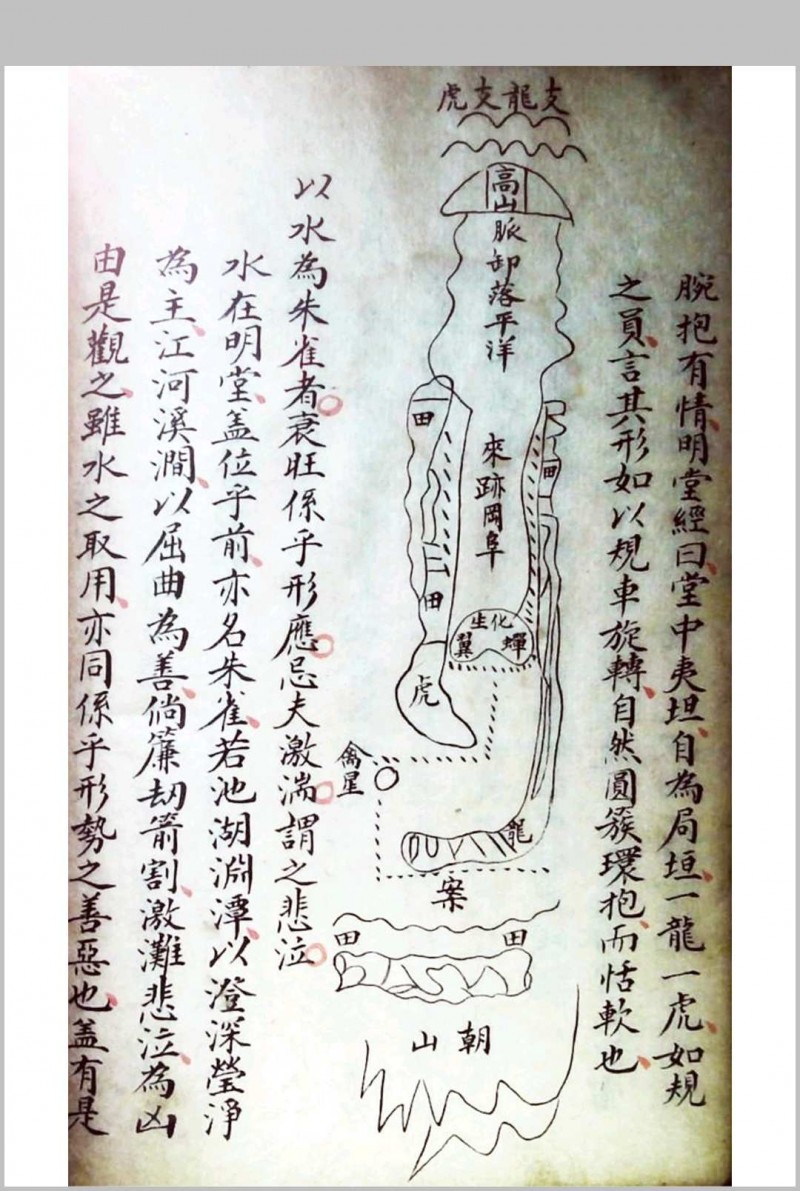 腕抱有情明堂經曰堂中夷坦自為局垣一龍一虎如規
之員言其形如以規車旋轉自然圓簇環抱而恬軟也
支龍支虎
高山脈卸落平洋
來跡岡阜
田
田
田
生化
蟬翼
虎
禽星
龍
案
田
田
朝山
以水為朱雀者衰旺係乎形應忌夫激湍謂之悲泣
水在明堂盖位乎前亦名朱雀若池湖淵潭以澄深瑩淨
為主江河溪澗以屈曲為善倘簾劫箭割激灘悲泣為凶
由是觀之雖水之取用亦同係乎形勢之善惡也盖有是